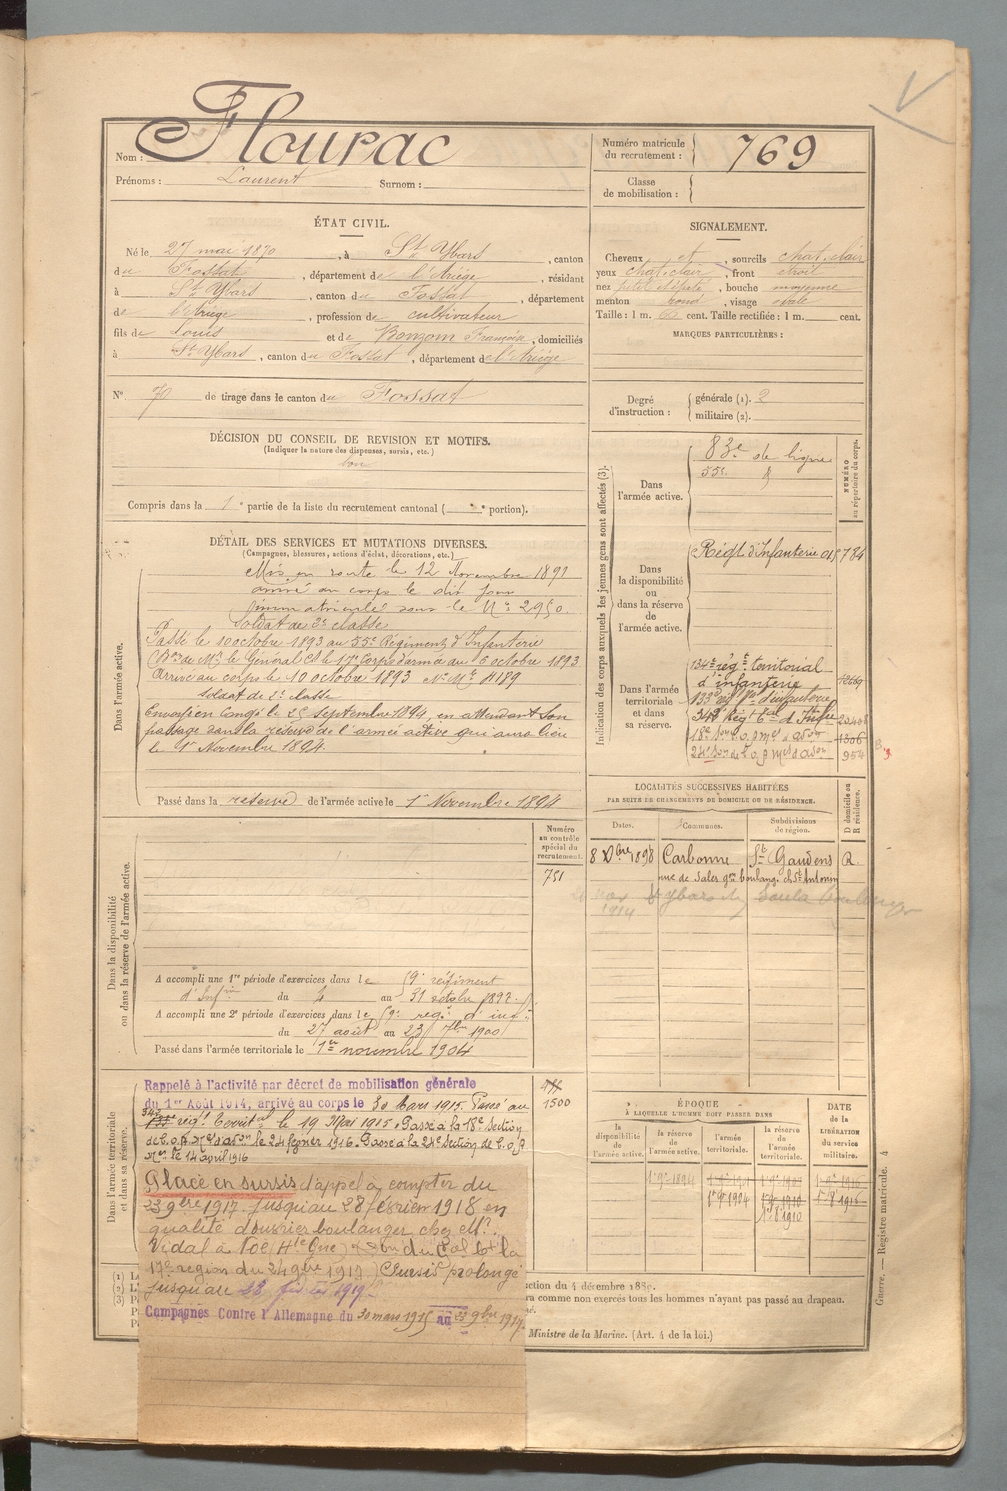 Nom : Flourac
Prénoms : Laurent Surnom :
Numéro matricule du recrutement : 769
Classe de mobilisation :
ÉTAT CIVIL.
Né le 27 mai 1870, à St Ybars, canton
du Fossat, département de l'Ariège, résidant
à St Ybars, canton du Fossat, département
de l'Ariège, profession de cultivateur
fils de Louis et de Bonzom Françoise, domiciliés
à St Ybars, canton du Fossat, département de l'Ariège
N° 70 de tirage dans le canton du Fossat
SIGNALEMENT.
Cheveux et, sourcils chat. clair
yeux chat. clair, front étroit
nez petit et épaté, bouche moyenne
menton rond, visage ovale
Taille : 1 m. cent. Taille rectifiée : 1 m. cent.
MARQUES PARTICULIÈRES :
Degré d'instruction : générale (1). 2
militaire (2).
DÉCISION DU CONSEIL DE REVISION ET MOTIFS.
(Indiquer la nature des dispenses, sursis, etc.)
bon
Compris dans la 1e partie de la liste du recrutement cantonal ( e portion).
DÉTAIL DES SERVICES ET MUTATIONS DIVERSES.
(Campagnes, blessures, actions d'éclat, décorations, etc.)
Dans l'armée active.
Mis en route le 12 Novembre 1891
arrivé au corps le dit jour
immatriculé sous le N° 2950
soldat de 2e classe
Passé le 10 octobre 1893 au 55e Régiment d'Infanterie
(Don de Mr le Général Ct le 17e Corps d'armée au 6 octobre 1893
Arrivé au corps le 10 octobre 1893 N° Mle 4189
soldat de 2e classe
Envoyé en congé le 25 septembre 1894, en attendant son
passage dans la réserve de l'armée active qui aura lieu
le 1er Novembre 1894.
Passé dans la réserve de l'armée active le 1er Novembre 1894
Indication des corps auxquels les jeunes gens sont affectés (3).
NUMÉRO au répertoire du corps.
Dans l'armée active.
83e de ligne
55e d°
Dans la disponibilité ou dans la réserve de l'armée active.
Régt d'Infanterie 784
Dans l'armée territoriale et dans sa réserve.
134e régt territorial
d'infanterie
133e régt d'infanterie
342 Régt d'Infie
18e Son c.o.a. 1306
24e Son de c.o.a. 954
LOCALITÉS SUCCESSIVES HABITÉES
PAR SUITE DE CHANGEMENTS DE DOMICILE OU DE RÉSIDENCE.
Dates. Communes. Subdivisions de région. D domicile ou R résidence.
8 Xbre 1898 Carbonne St Gaudens R.
rue de Sales gon boulang. ch St Antonin
1914 St Ybars Saula boulanger
Numéro au contrôle spécial du recrutement.
751
Dans la disponibilité ou dans la réserve de l'armée active.
A accompli une 1re période d'exercices dans le 59e régiment
d'Infrie du 4 au 31 octobre 1897.
A accompli une 2e période d'exercices dans le 59e regt d'inf.
du 27 août au 23 7bre 1900
Passé dans l'armée territoriale le 1er novembre 1904
Dans l'armée territoriale et dans sa réserve.
1500
Rappelé à l'activité par décret de mobilisation générale
du 1er Août 1914, arrivé au corps le 30 Mars 1915. Passé au
342 régt territal le 19 Mai 1915. Passé à la 18e Section
de C.o.a. le 24 février 1916. Passé à la 24e Section de C.o.a
le 14 avril 1916
Placé en sursis d'appel à compter du
23 9bre 1917 jusqu'au 28 février 1918 en
qualité d'ouvrier boulanger chez Mr
Vidal à Noé (Hte Gne) (Don du Gal Ct la
17e région du 24 9bre 1917) (Sursis prolongé
jusqu'au 28 février 1919.
Campagnes Contre l'Allemagne du 30 mars 1915 au 23 9bre 1917.
ÉPOQUE
À LAQUELLE L'HOMME DOIT PASSER DANS
la disponibilité de l'armée active. la réserve de l'armée active. l'armée territoriale. la réserve de l'armée territoriale. DATE de la LIBÉRATION du service militaire.
1er 9bre 1894
1er 9bre 1904
1er 8 1910
ction du 4 décembre 1889.
ra comme non exercés tous les hommes n'ayant pas passé au drapeau.
Ministre de la Marine. (Art. 4 de la loi.)
Guerre. — Registre matricule. 4